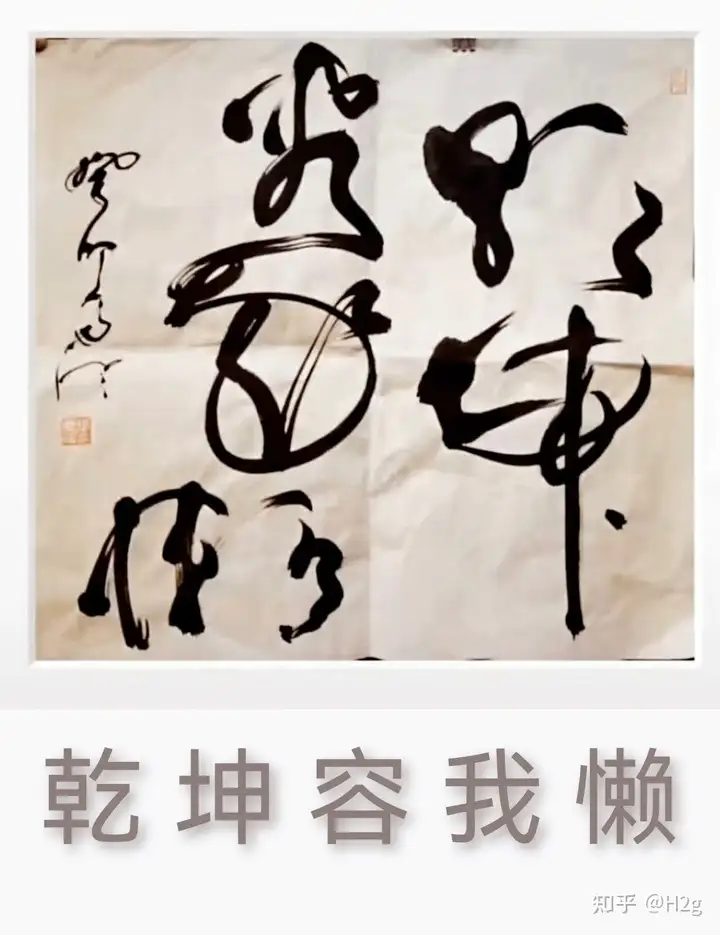 乾坤
容我懒
癸卯
乾坤容我懒
知乎 @H2g